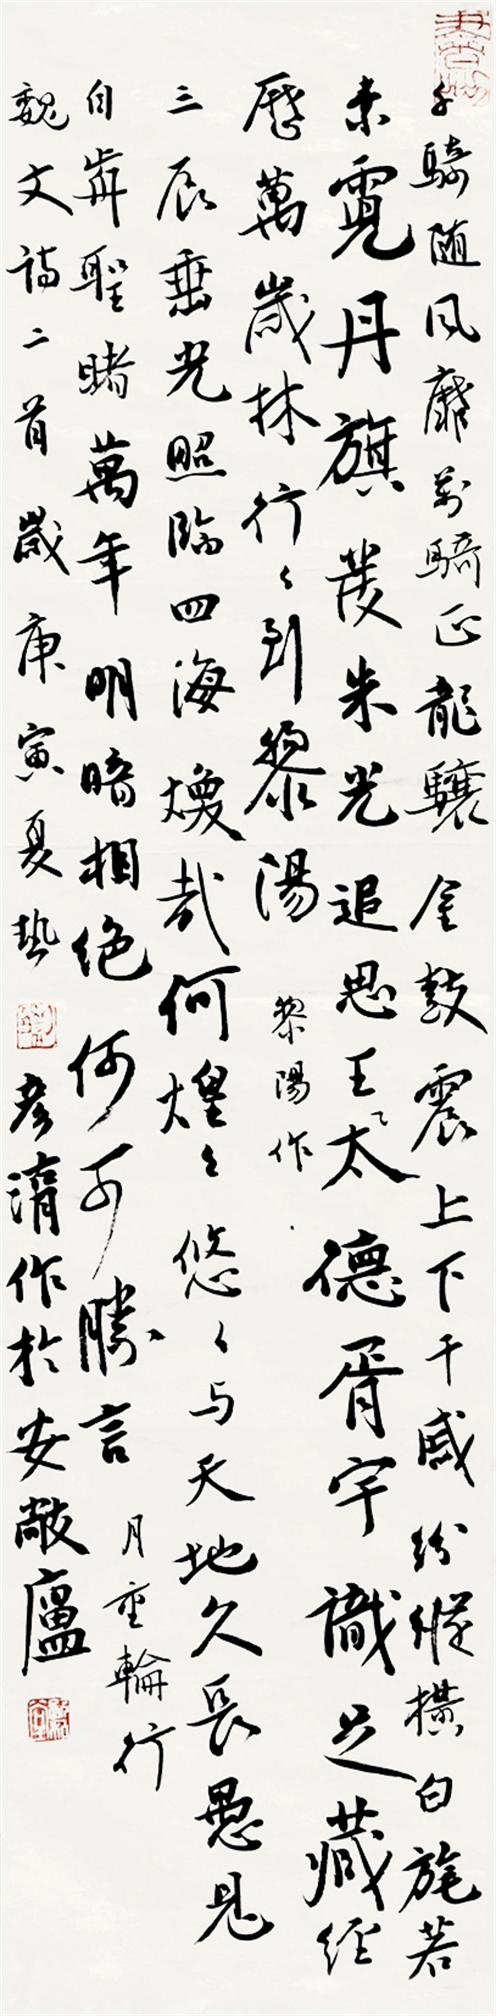 千騎随風靡万騎正龍驤金鼓震上下干戚紛縱橫白旄若
素霓丹旗發朱光追思王太德胥宇識足藏經
歷萬歲林行〻到黎陽
黎陽作
三辰垂光照臨四海煥哉何煌〻悠〻与天地久長愚見
自歬聖睹萬年明暗相絕何可勝言
月重輪行
魏文詩二首歲庚寅夏熱 彥作於安敞廬